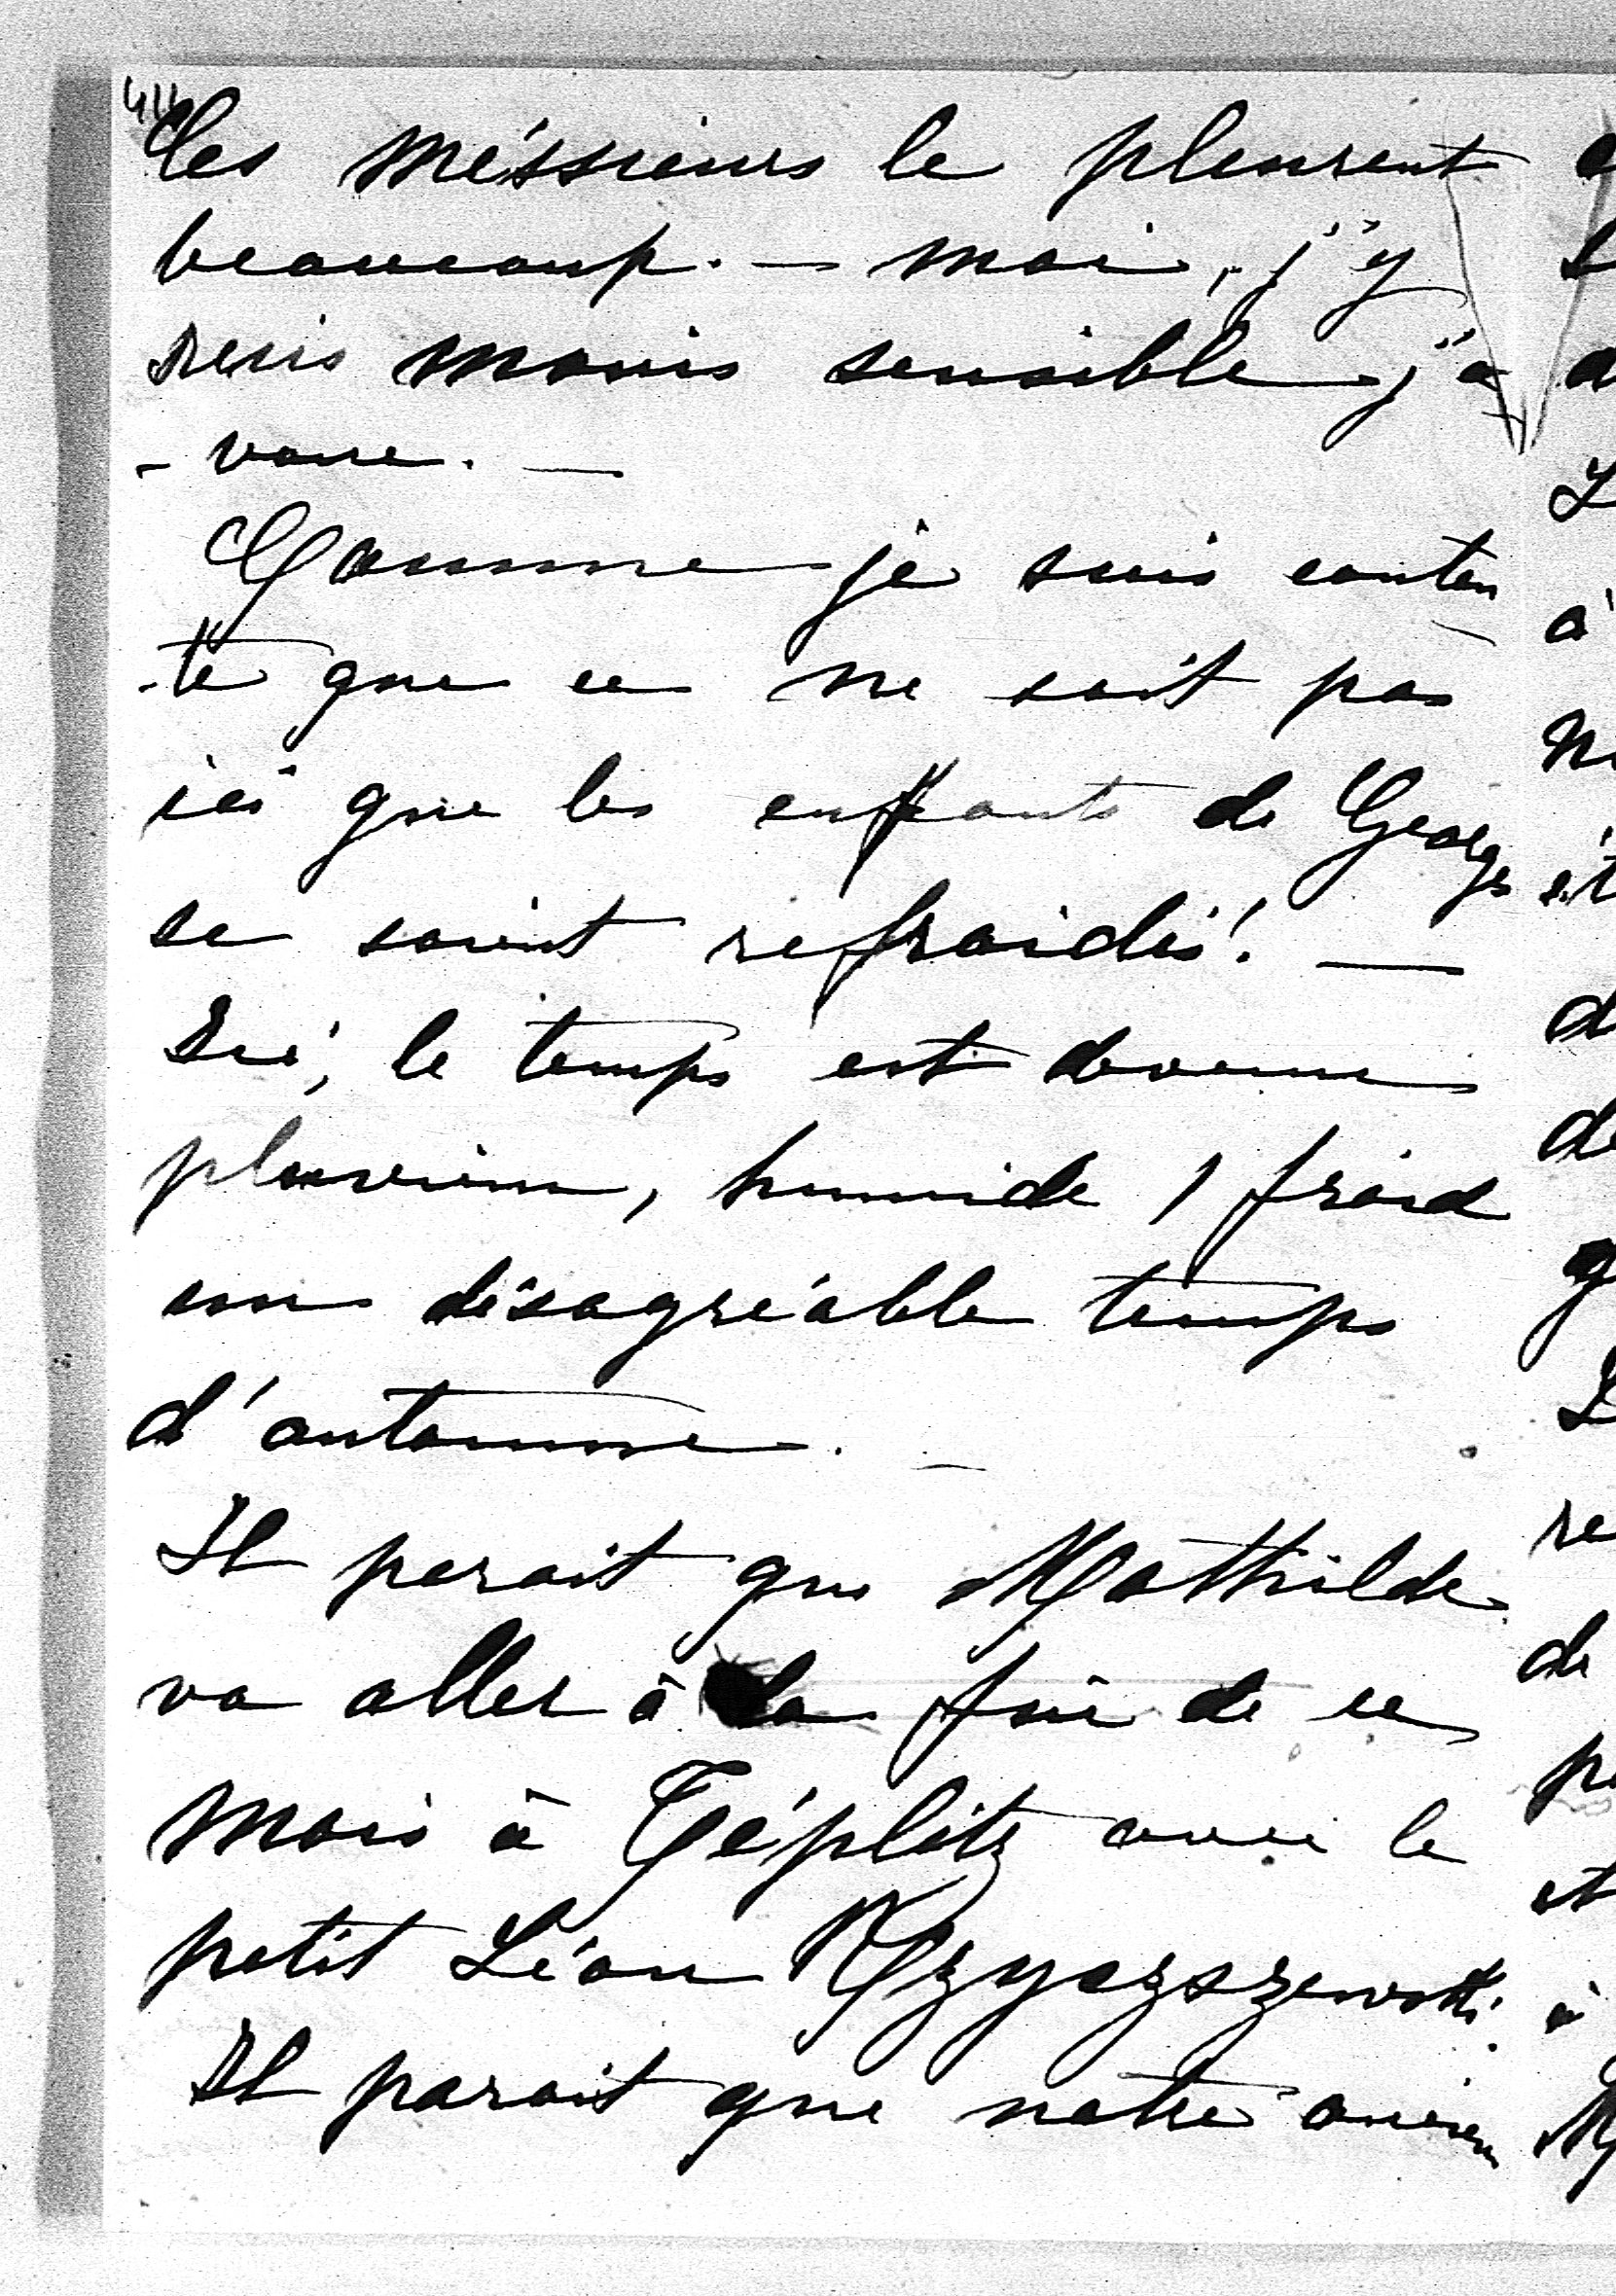 Ces méssieurs le pleurent
beaucoup. — moi, j'y
suis moins sensible j'a
- voue. —
Comme je suis conten
-te que ce ne soit pas
ici que les enfants de Georges
se soient refroidis! —
Ici, le temps est devenu
pluvieux, humide, froid
un désagréable temps
d'automne. —
Il parait que Mathilde
va aller à la fin de ce
mois à Téplitz avec le
petit Léon
Il parait que notre ancien